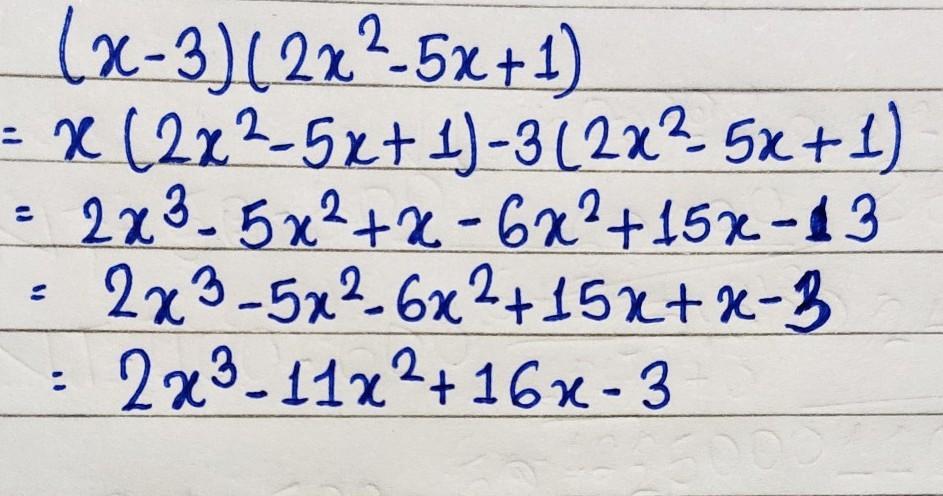 (x-3)(2x²-5x+1)
= x(2x²-5x+1)-3(2x²-5x+1)
= 2x³-5x²+x-6x²+15x-3
= 2x³-5x²-6x²+15x+x-3
= 2x³-11x²+16x-3